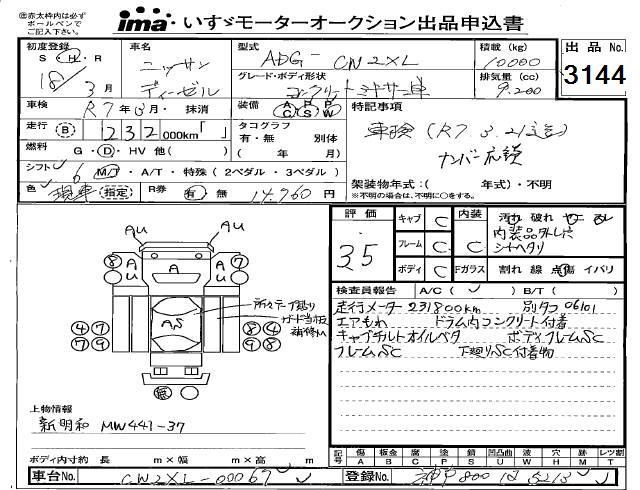 ㊟赤太枠内は必ず
ボールペンで
ご記入下さい。
ima いすゞモーターオークション出品申込書
初度登録 S・H・R 18年 3月
車名 ニッサン ディーゼル
型式 ADG- CN2XL
グレード・ボディ形状 コンクリートミキサー車
積載(kg) 10000
排気量(cc) 9.200
出品No. 3144
車検 R7年3月・抹消
装備 A P P C S W
走行 B 232 000km「 」
タコグラフ 有・無 別体 ( 年 月)
燃料 G・D・HV 他( )
シフト 6 M/T・A/T・特殊(2ペダル・3ペダル)
色 現車 指定 R券 有 無 14.760円
特記事項
車検(R7.3.21迄)
ナンバー応談
架装物年式:( 年式)・不明
※不明の場合は、不明に○をする。
評価 3.5
キャブ C 内装 C
フレーム C
ボディ C Fガラス
汚れ 破れ ヤニ ヌレ
内装品外し穴
シートヘタリ
割れ 線 点傷 イバリ
検査員報告 A/C( ) B/T( )
走行メーター 231800km 別タコ 06101
エアもれ ドラム内コンクリート付着
キャブチルトオイルベタ ボディフレームSC
フレームSC 下廻りSC付着物
AU AU
AU A AU
AS
⑧ ⑦
④⑦ ⑧④
⑦⑨ ⑨⑧
所々テープ貼り
ガード当板
補修A
無
上物情報
新明和 MW441-37
ボディ内寸約 長 m×幅 m×高 m
記号 傷 A 板金 B 腐 C 塗 P 錆 S 凹凸曲 U 波 W 穴 H 跡 M レツ割 T
車台No. CW2XL-00067
登録No. 神戸 800 は 5213